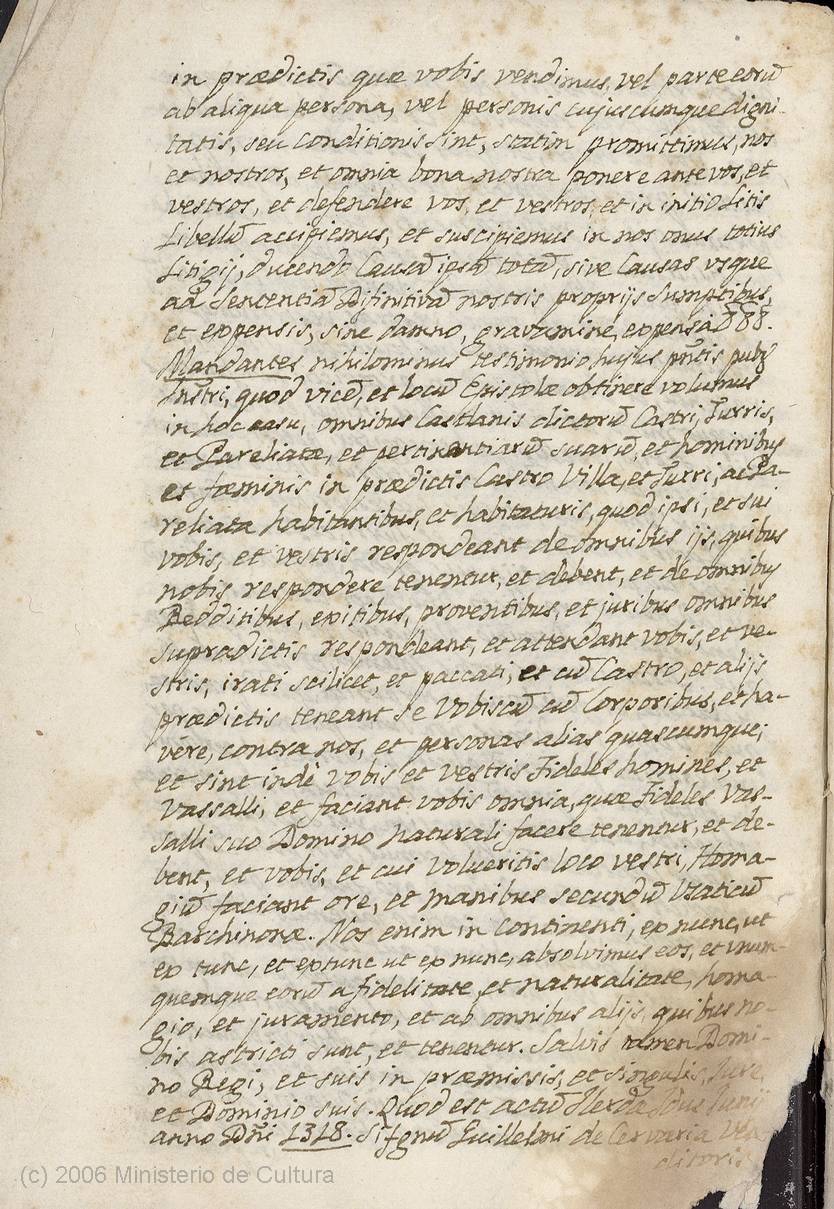 in prædictis quæ vobis vendimus, vel parte eorū
ab aliqua persona, vel personis cujuscumque digni-
tatis, seu conditionis sint, statim promittimus, nos
et nostros, et omnia bona nostra ponere ante vos, et
vestros, et defendere vos, et vestros, et in initio Litis
Libellū accipiemus, et suscipiemus in nos onus totius
Litigij, ducendo Causā ipsā totā, sive Causas usque
ad Sententiā Difinitivā nostris proprijs sumptibus,
et expensis, sine damno, gravamine, expensa
Mandantes nihilominus testimonio hujus pñtis
Instri, quod vicē, et locū Epistolæ obtinere volumus
in hoc casu, omnibus Castlanis dictorū Castri, Turris,
et Pareliatæ, et pertinentiarū suarū, et hominibus
et fœminis in prædictis Castro Villa, et Turri, ac Pa-
reliata habitantibus, et habitaturis, quod ipsi, et sui
vobis, et vestris respondeant de omnibus ijs, quibus
nobis respondere tenentur, et debent, et de omnibus
Redditibus, exitibus, proventibus, et juribus omnibus
supradictis respondeant, et attendant vobis, et ve-
stris, irati scilicet, et paccati, et cū Castro, et alijs
prædictis teneant se Vobiscū cū Corporibus, et ha-
vére, contra nos, et personas alias quascumque;
et sint indè vobis et vestris Fideles homines, et
Vassalli, et faciant vobis omnia, quæ Fideles Vas-
salli suo Domino naturali facere tenentur, et de-
bent, et vobis, et cui Volueritis loco vestri, Homa-
giū faciant ore, et manibus secundū Usaticū
Barchinonæ. Nos enim in continenti, ex nunc, ut
ex tunc, et ex tunc ut ex nunc, absolvimus eos, et unum-
quemque eorū a fidelitate, et naturalitate, homa-
gio, et juramento, et ab omnibus alijs, quibus no-
bis astricti sunt, et tenentur. Salvis tamen Domi-
no Regi, et suis in præmissis, et singulis, Jure
et Dominio suis. Quod est actū Ilerdæ Idus Junij
anno Dñi 1318. Sig̃num Guillelmi de Cervaria Ven
ditoris
(c) 2006 Ministerio de Cultura